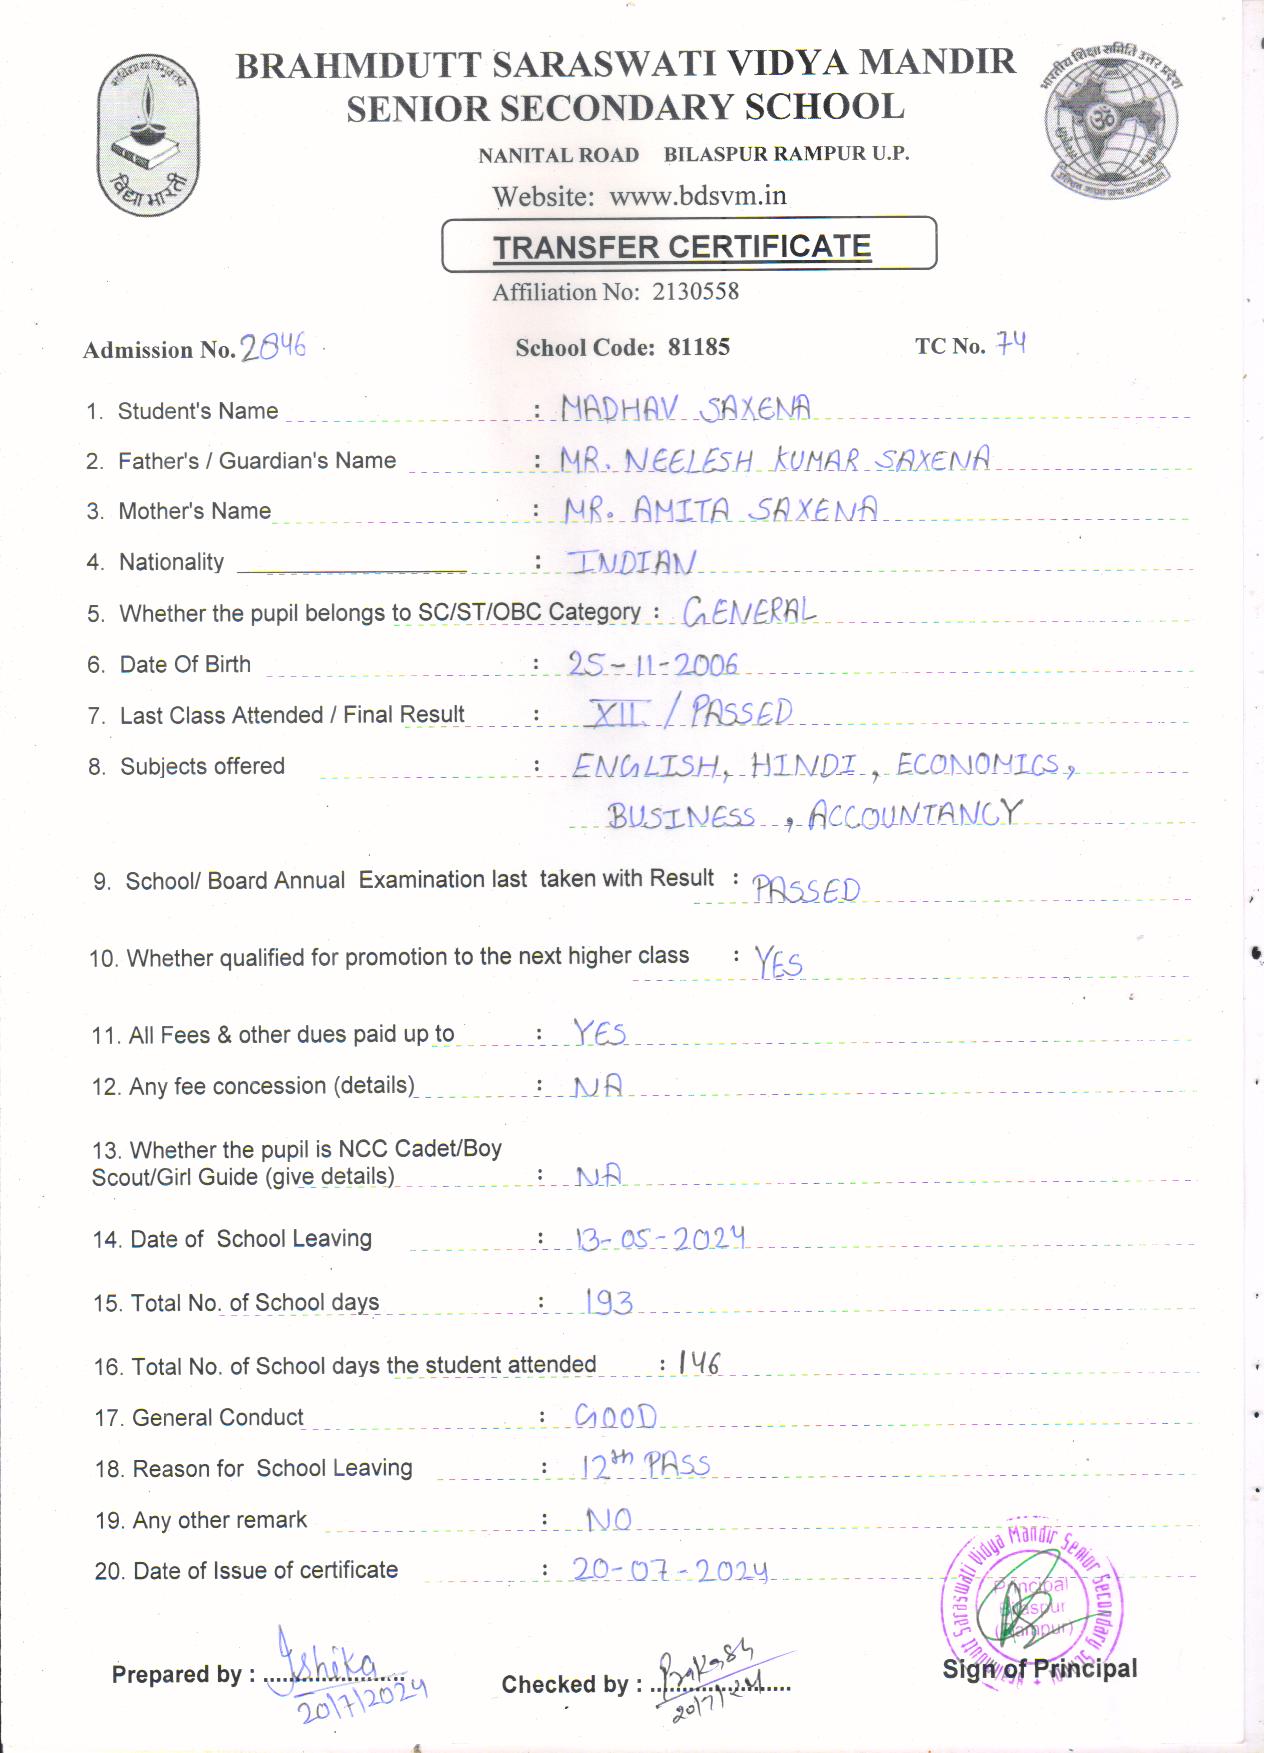 BRAHMDUTT SARASWATI VIDYA MANDIR
SENIOR SECONDARY SCHOOL
NANITAL ROAD BILASPUR RAMPUR U.P.
Website: www.bdsvm.in
TRANSFER CERTIFICATE
Affiliation No: 2130558
विद्या भारती
Admission No. 2846 School Code: 81185 TC No. 74
1. Student's Name : MADHAV SAXENA
2. Father's / Guardian's Name : MR. NEELESH KUMAR SAXENA
3. Mother's Name : MR. AMITA SAXENA
4. Nationality : INDIAN
5. Whether the pupil belongs to SC/ST/OBC Category : GENERAL
6. Date Of Birth : 25-11-2006
7. Last Class Attended / Final Result : XII / PASSED
8. Subjects offered : ENGLISH, HINDI, ECONOMICS,
BUSINESS, ACCOUNTANCY
9. School/ Board Annual Examination last taken with Result : PASSED
10. Whether qualified for promotion to the next higher class : YES
11. All Fees & other dues paid up to : YES
12. Any fee concession (details) : NA
13. Whether the pupil is NCC Cadet/Boy
Scout/Girl Guide (give details) : NA
14. Date of School Leaving : 13-05-2024
15. Total No. of School days : 193
16. Total No. of School days the student attended : 146
17. General Conduct : GOOD
18. Reason for School Leaving : 12th PASS
19. Any other remark : NO
20. Date of Issue of certificate : 20-07-2024
Saraswati Vidya Mandir Senior Secondary
Principal
Bilaspur
(Rampur)
Prepared by : Ishika
20/7/2024
Checked by :
20/7/24
Sign of Principal